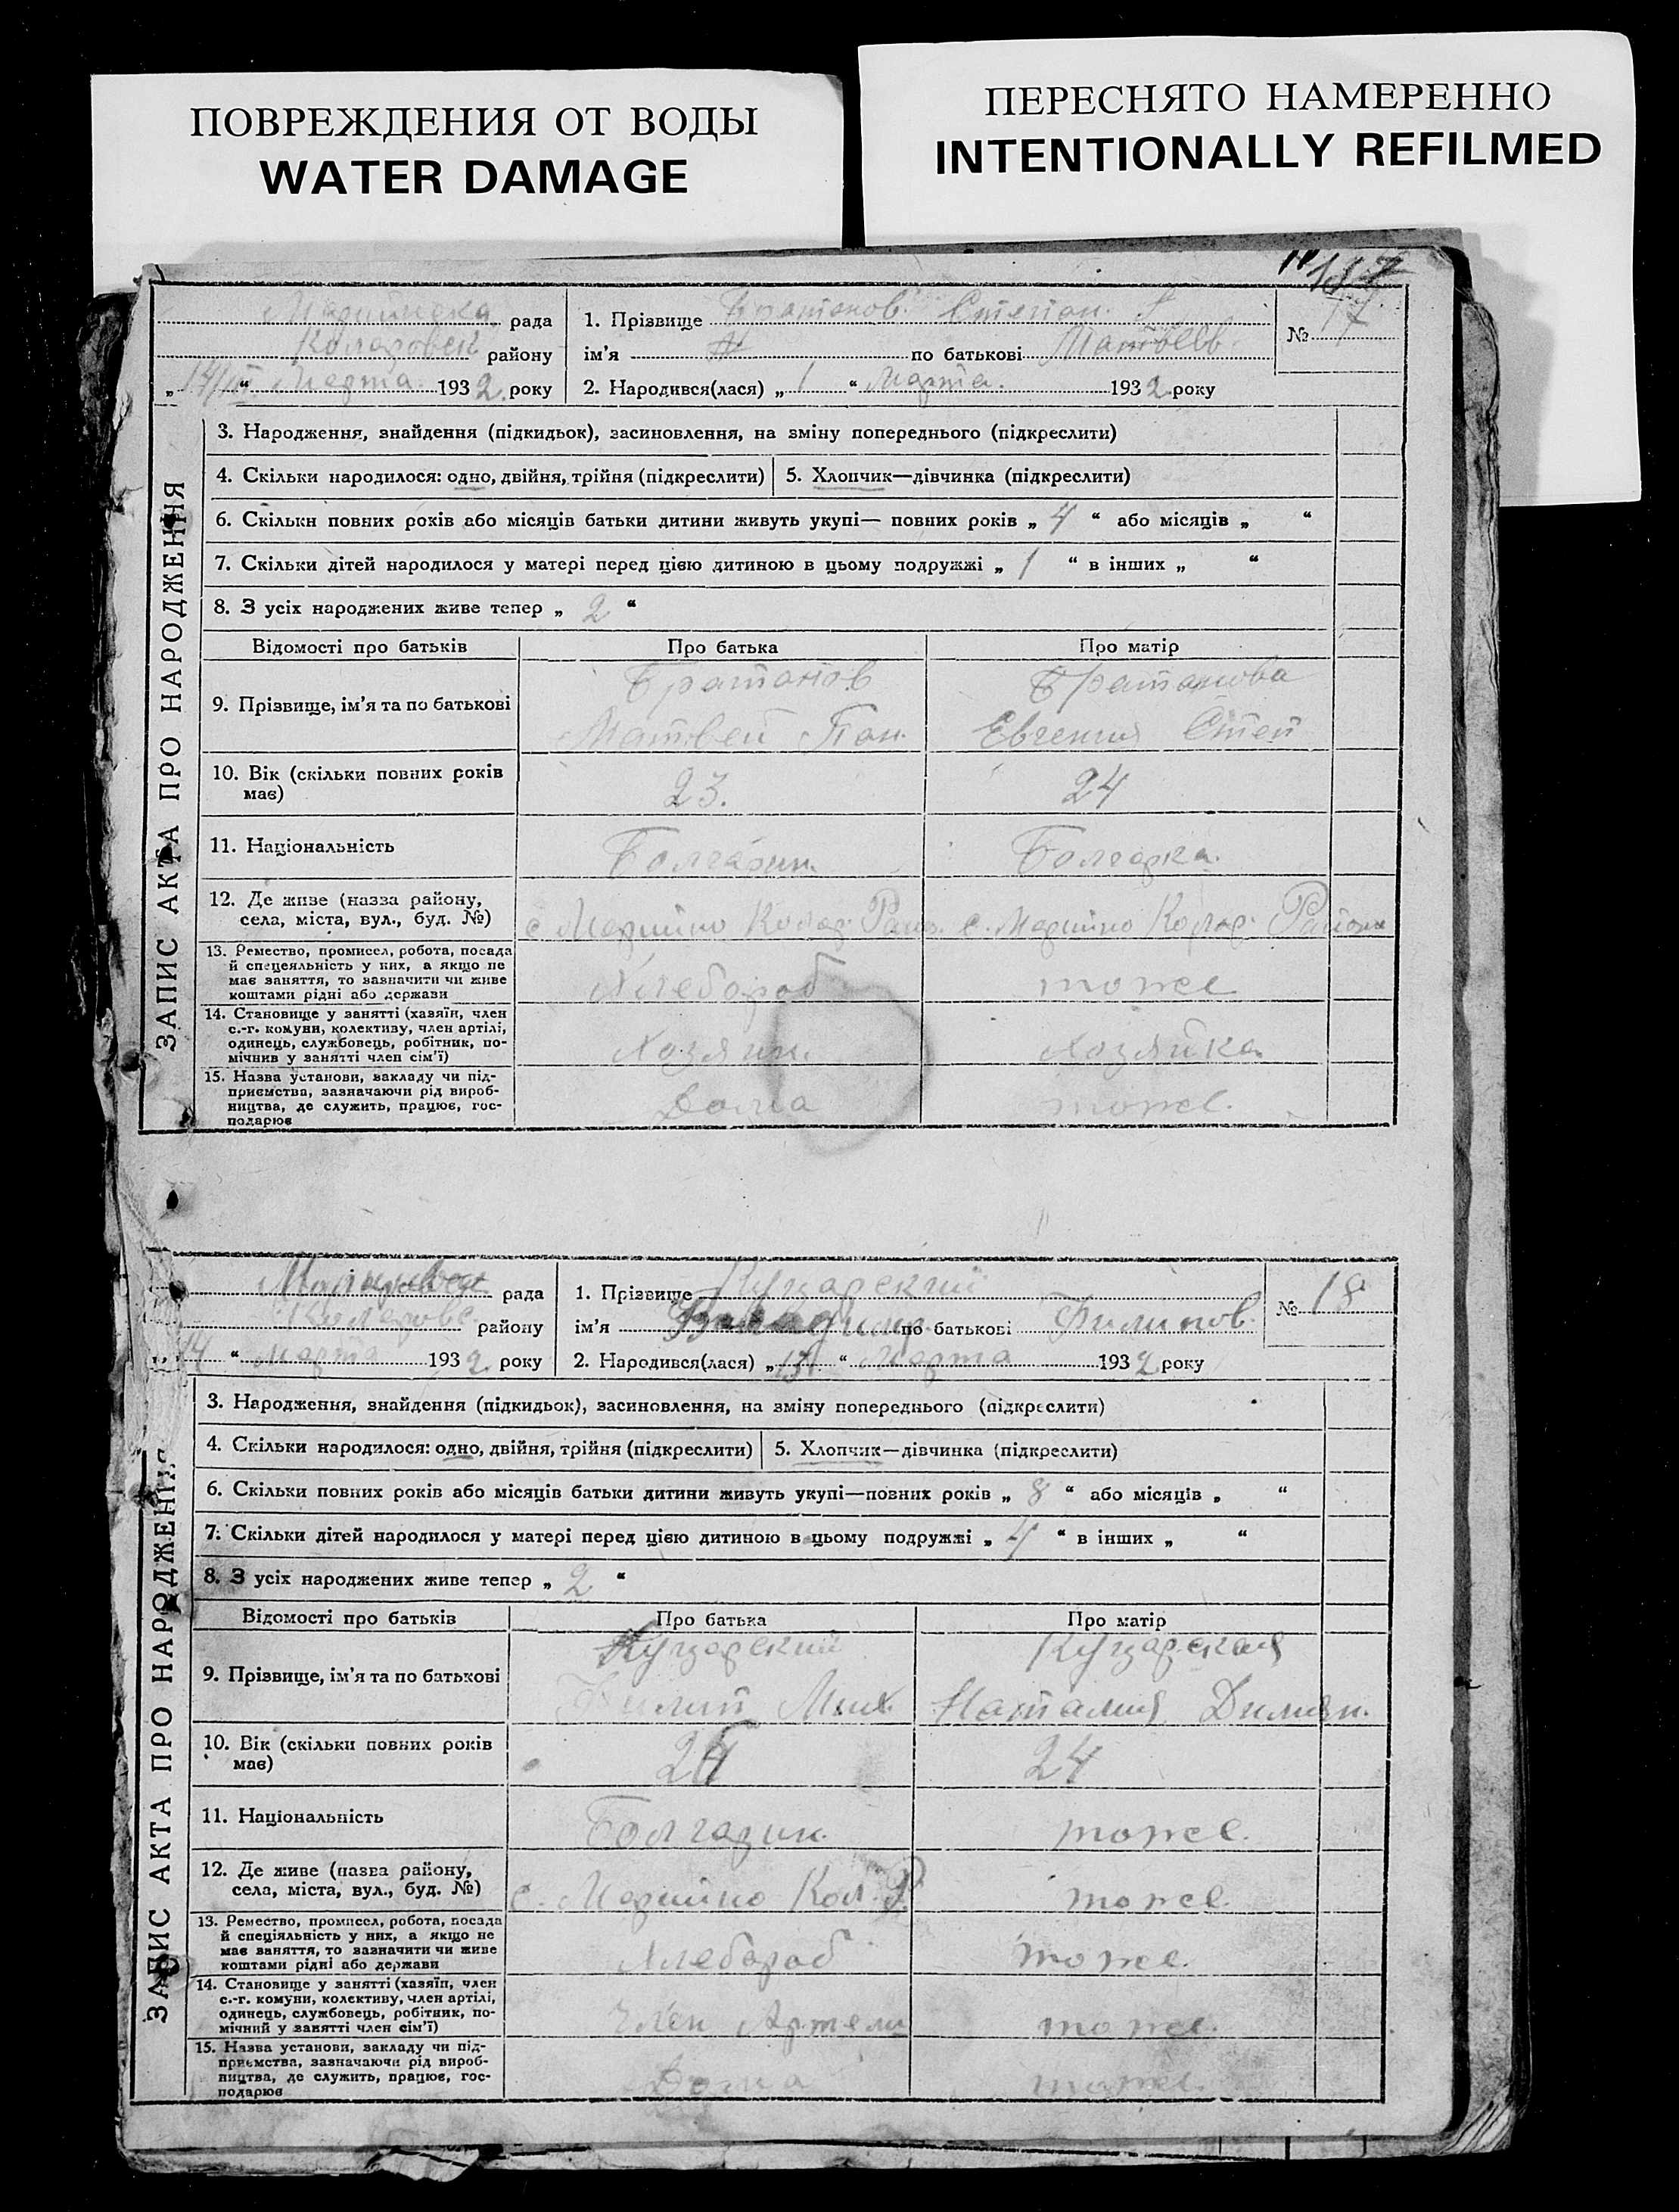 ПОВРЕЖДЕНИЯ ОТ ВОДЫ
WATER DAMAGE
ПЕРЕСНЯТО НАМЕРЕННО
INTENTIONALLY REFILMED
ЗАПИС АКТА ПРО НАРОДЖЕННЯ
рада
району
Марта 1932 року
1. Прізвище Братанов Степан
ім'я по батькові Матвеев.
2. Народився(лася) „ 1 “ Марта 1932 року
№ 17
3. Народження, знайдення (підкидьок), засиновлення, на зміну попереднього (підкреслити)
4. Скільки народилося: одно, двійня, трійня (підкреслити)
5. Хлопчик—дівчинка (підкреслити)
6. Скільки повних років або місяців батьки дитини живуть укупі— повних років „ 4 “ або місяців „ “
7. Скільки дітей народилося у матері перед цією дитиною в цьому подружжі „ 1 “ в інших „ “
8. З усіх народжених живе тепер „ 2 “
Відомості про батьків Про батька Про матір
9. Прізвище, ім'я та по батькові
Братанов
Матвей Пан.
Братанова
Евгения Степ
10. Вік (скільки повних років
має)
23.
24
11. Національність
Болгарин.
Болгарка.
12. Де живе (назва району,
села, міста, вул., буд. №)
с. Марийно Колар. Район.
с. Марийно Колар. Района
13. Ремество, промисел, робота, посада
й спецеяльність у них, а якщо не
має заняття, то зазначити чи живе
коштами рідні або держави
Хлебороб
тоже
14. Становище у занятті (хазяїн, член
с.-г. комуни, колективу, член артілі,
одинець, службовець, робітник, по-
мічнив у занятті член сім'ї)
Хозяин.
Хозяйка.
15. Назва установи, закладу чи під-
приємства, зазначаючи рід вироб-
ництва, де служить, працює, гос-
подарює
Дома
тоже.
ЗАПИС АКТА ПРО НАРОДЖЕННЯ
рада
району
14 “ Марта 1932 року
1. Прізвище Куцарский
ім'я по батькові Филипов.
2. Народився(лася) „ “ Марта 1932 року
№ 18
3. Народження, знайдення (підкидьок), засиновлення, на зміну попереднього (підкреслити)
4. Скільки народилося: одно, двійня, трійня (підкреслити)
5. Хлопчик—дівчинка (підкреслити)
6. Скільки повних років або місяців батьки дитини живуть укупі—повних років „ 8 “ або місяців „ “
7. Скільки дітей народилося у матері перед цією дитиною в цьому подружжі „ 4 “ в інших „ “
8. З усіх народжених живе тепер „ 2 “
Відомості про батьків Про батька Про матір
9. Прізвище, ім'я та по батькові
Куцарский
Филип Мих.
Куцарская
Наталия Димян.
10. Вік (скільки повних років
має)
24
11. Національність
Болгарин.
тоже.
12. Де живе (назва району,
села, міста, вул., буд. №)
с. Марийно Кол. Р.
тоже.
13. Ремество, промисел, робота, посада
й спеціяльність у них, а якщо не
має заняття, то зазначити чи живе
коштами рідні або держави
Хлебороб
тоже.
14. Становище у занятті (хазяїн, член
с.-г. комуни, колективу, член артілі,
одинець, службовець, робітник, по-
мічний у занятті член сім'ї)
Член Артели
тоже.
15. Назва установи, закладу чи під-
приємства, зазначаючи рід вироб-
ництва, де служить, працює, гос-
подарює
Дома
тоже.